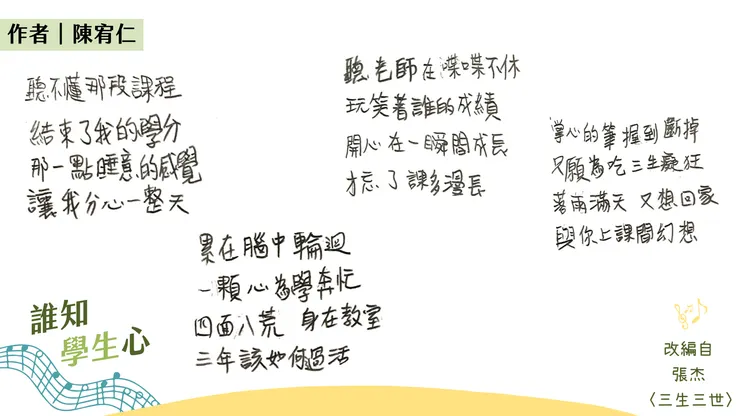 作者｜陳宥仁
聽不懂那段課程
結束了我的學分
那一點睡意的感覺
讓我分心一整天
累在腦中輪迴
一顆心為學奔忙
四面八荒 身在教室
三年該如何過活
聽老師在喋喋不休
玩笑著誰的成績
開心在一瞬間成長
才忘了課多漫長
掌心的筆握到斷掉
只願為吃三生癡狂
落雨滿天 又想回家
與你上課間幻想
誰知
學生心
改編自
張杰
〈三生三世〉